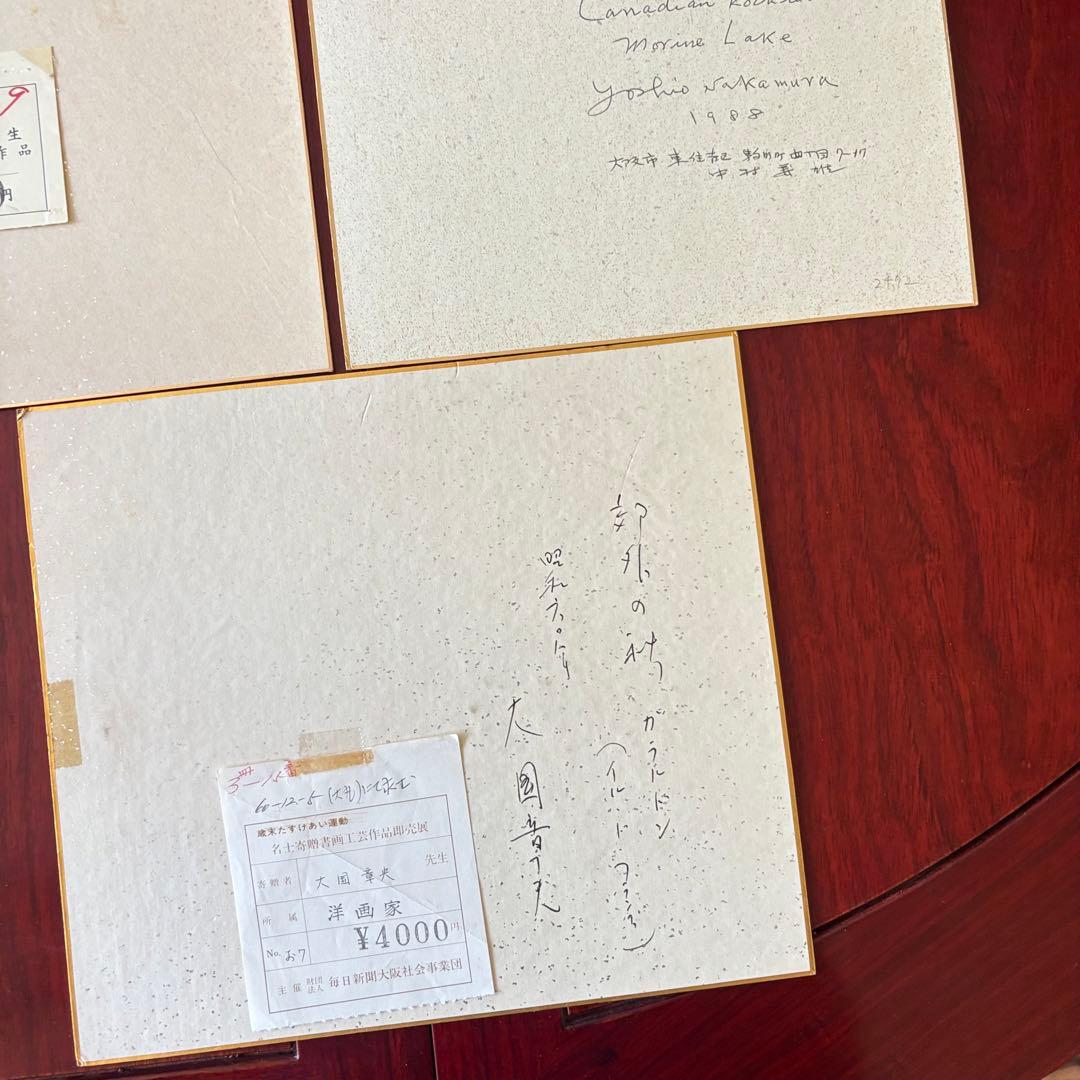 9
生
作品
円
Canadian
Morine Lake
Yoshio Nakamura
1988
大阪市 東住吉区
中村 義雄
2492
郊外の秋 ガラルドン
(イルドフランス)
昭和六〇年
大國章夫
60-12-5
歳末たすけあい運動
名士寄贈書画工芸作品即売展
寄贈者 大国章夫 先生
所属 洋画家
No. お7 ¥4000円
主催 財団法人 毎日新聞大阪社会事業団